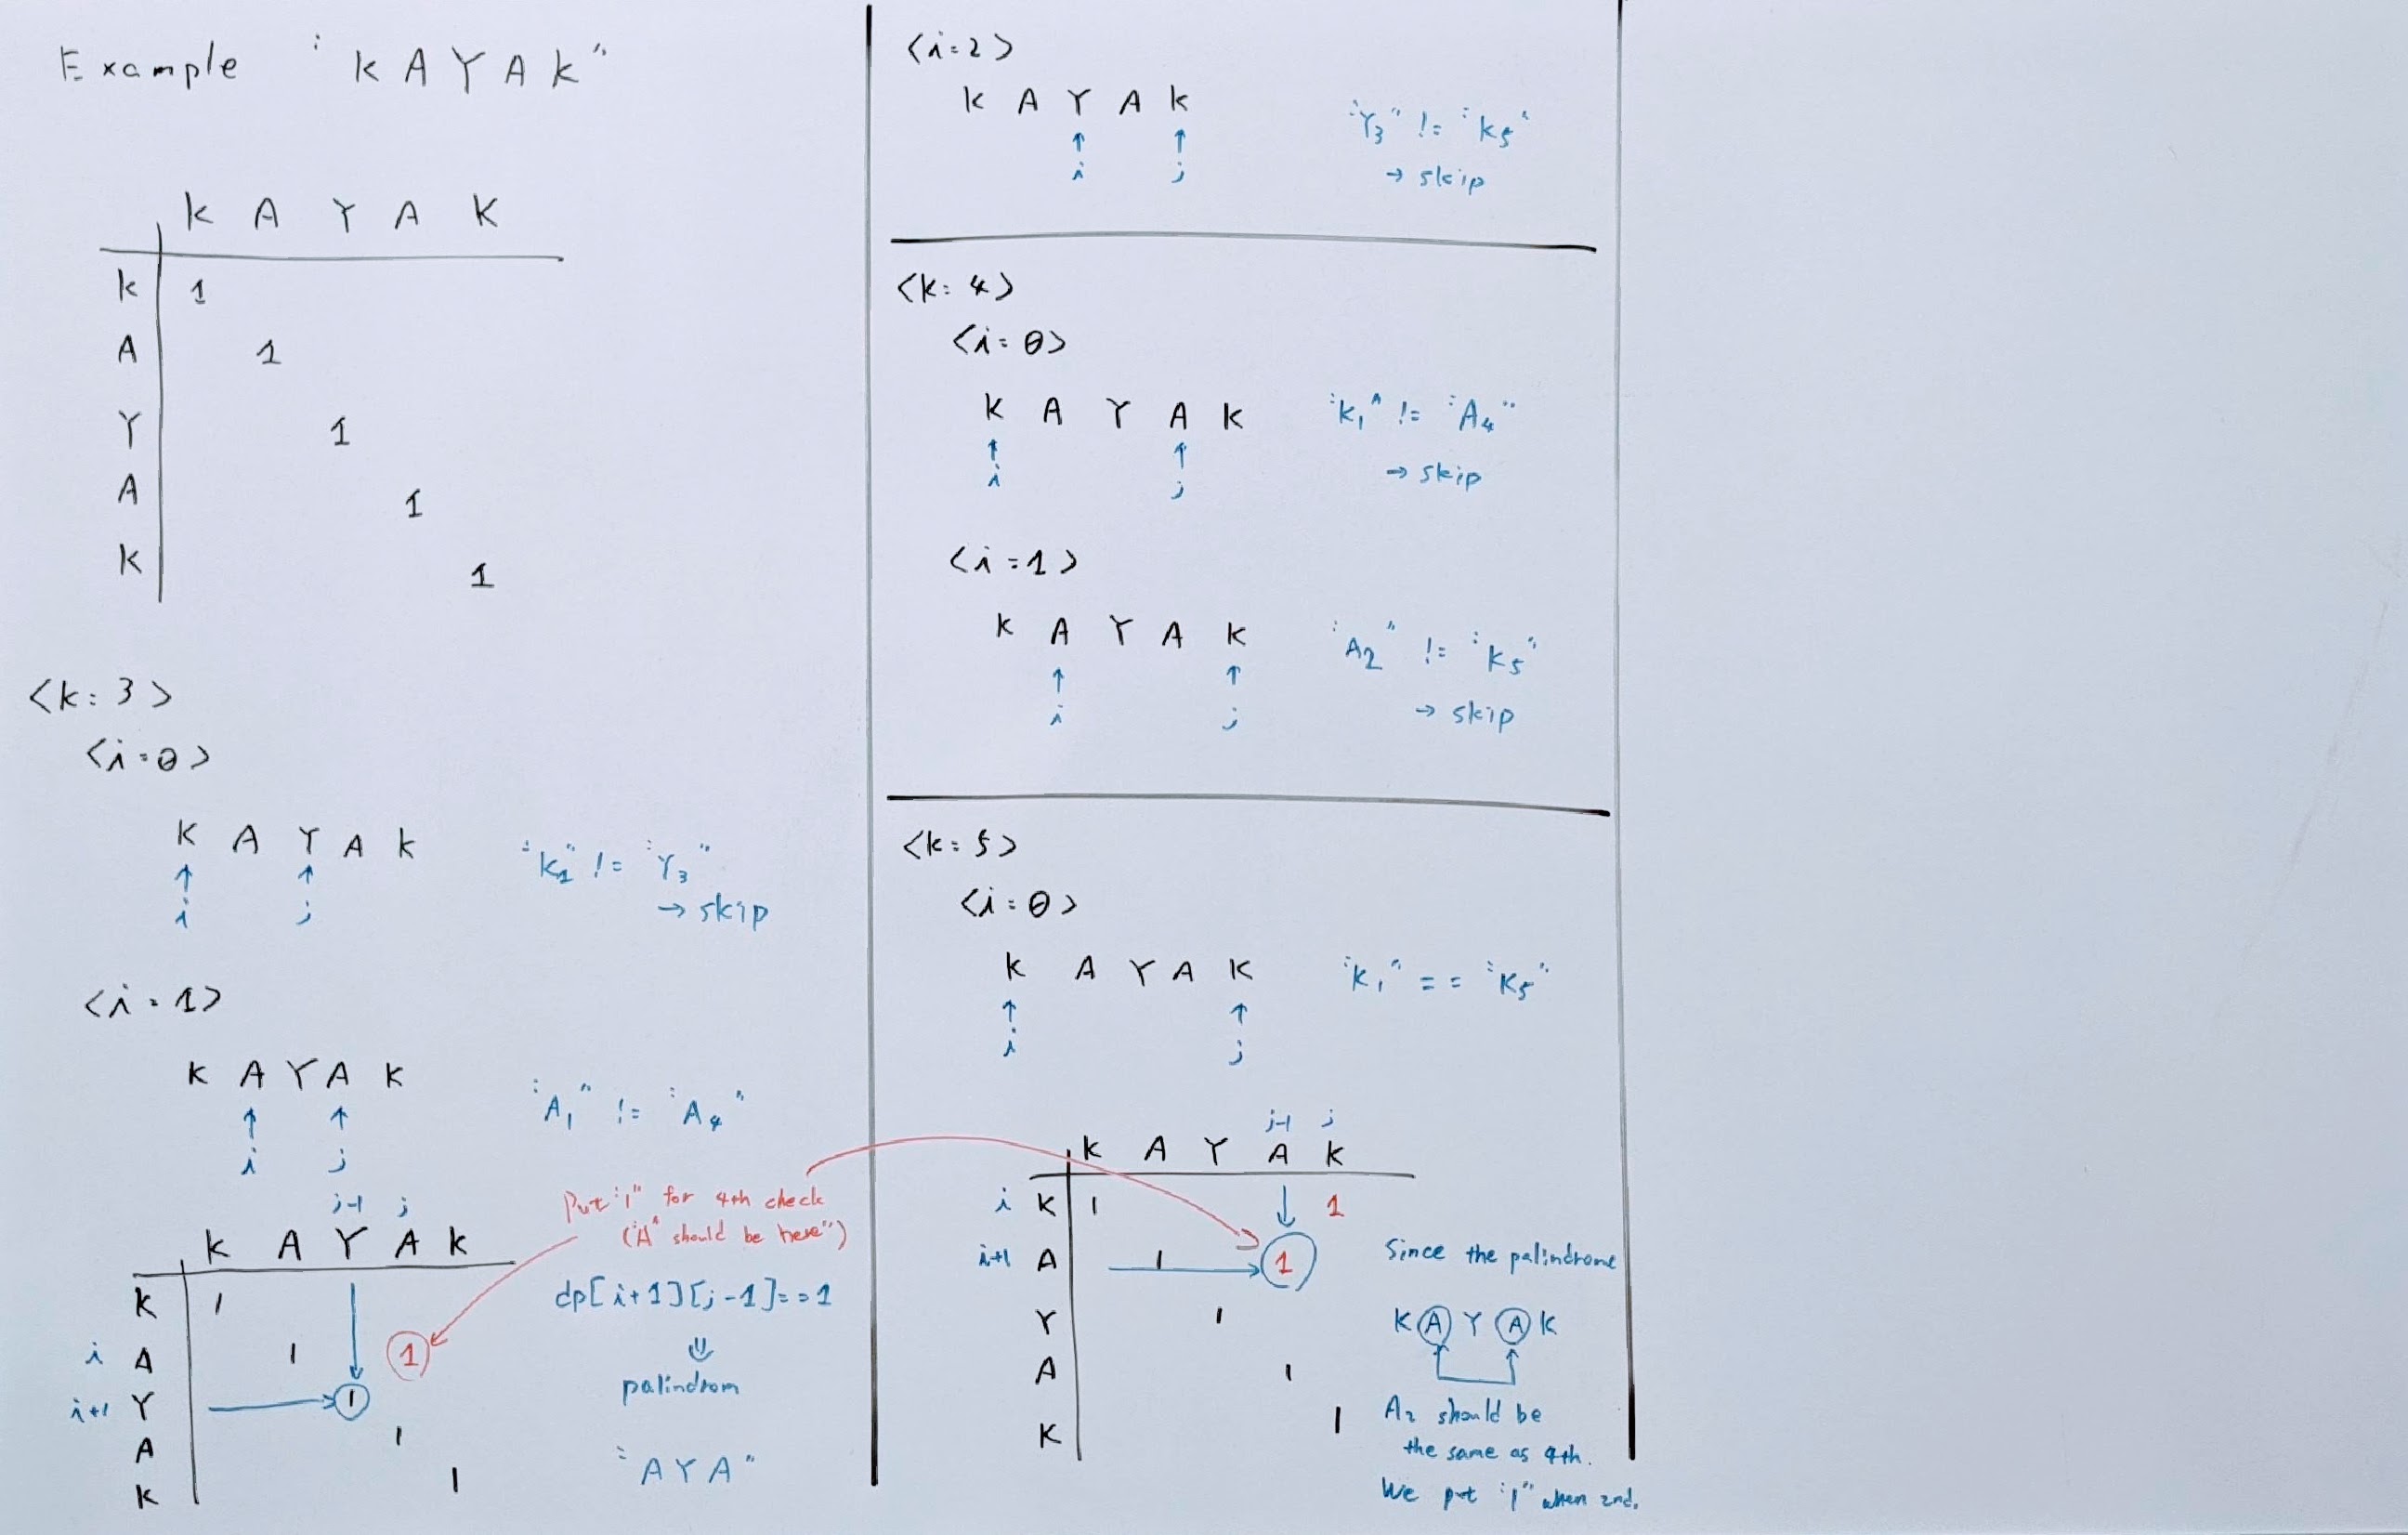 Example "KAYAK"
K A Y A K
K 1
A 1
Y 1
A 1
K 1
<k:3>
<i=0>
K A Y A K
"K1" != "Y3"
i j
→ skip
<i=1>
K A Y A K
"A1" != "A4"
i j
j-1 j
K A Y A K
K 1
i A 1 1
i+1 Y 1
A 1
K 1
Put "1" for 4th check
("A" should be here")
dp[i+1][j-1]==1
⇓
palindrom
"AYA"
<i=2>
K A Y A K
"Y3" != "K5"
i j
→ skip
<k:4>
<i=0>
K A Y A K
"K1" != "A4"
i j
→ skip
<i=1>
K A Y A K
"A2" != "K5"
i j
→ skip
<k:5>
<i=0>
K A Y A K
"K1" == "K5"
i j
j-1 j
K A Y A K
i K 1 1
i+1 A 1 1
Y 1
A 1
K 1
Since the palindrome
K A Y A K
A2 should be
the same as 4th.
We put "1" when 2nd.